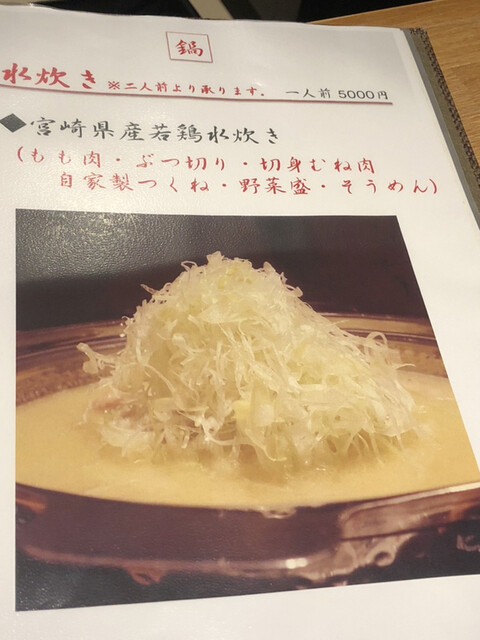 鍋
水炊き ※二人前より承ります。 一人前 5000円
◆宮崎県産若鶏水炊き
(もも肉・ぶつ切り・切身むね肉
自家製つくね・野菜盛・そうめん)